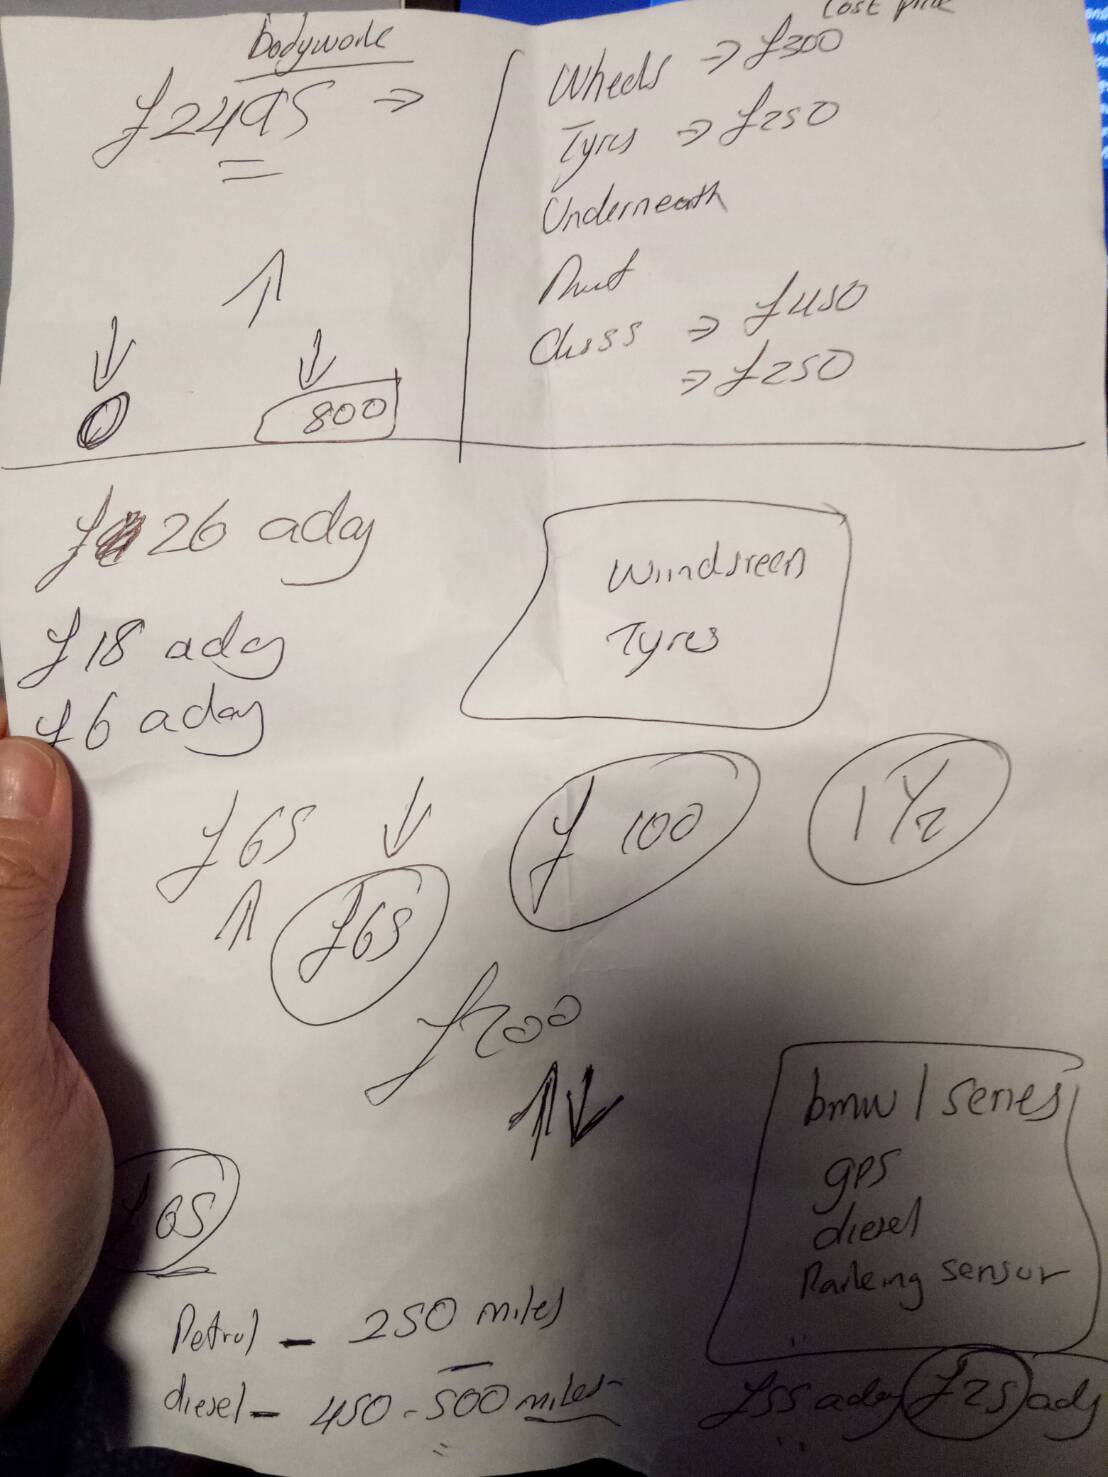 bodywork
£2495 ⇒
800
Cost price
Wheels ⇒ £300
Tyres ⇒ £250
Underneath
⇒ £450
⇒ £250
£ 26 a day
£18 a day
£6 a day
Wiindsreen
Tyres
£65
£65
£100
1 1/2
£200
£65
bmw 1 series
gps
diesel
Parking sensor
Petrol - 250 miles
diesel - 450 - 500 miles
£55 a day £25 a day